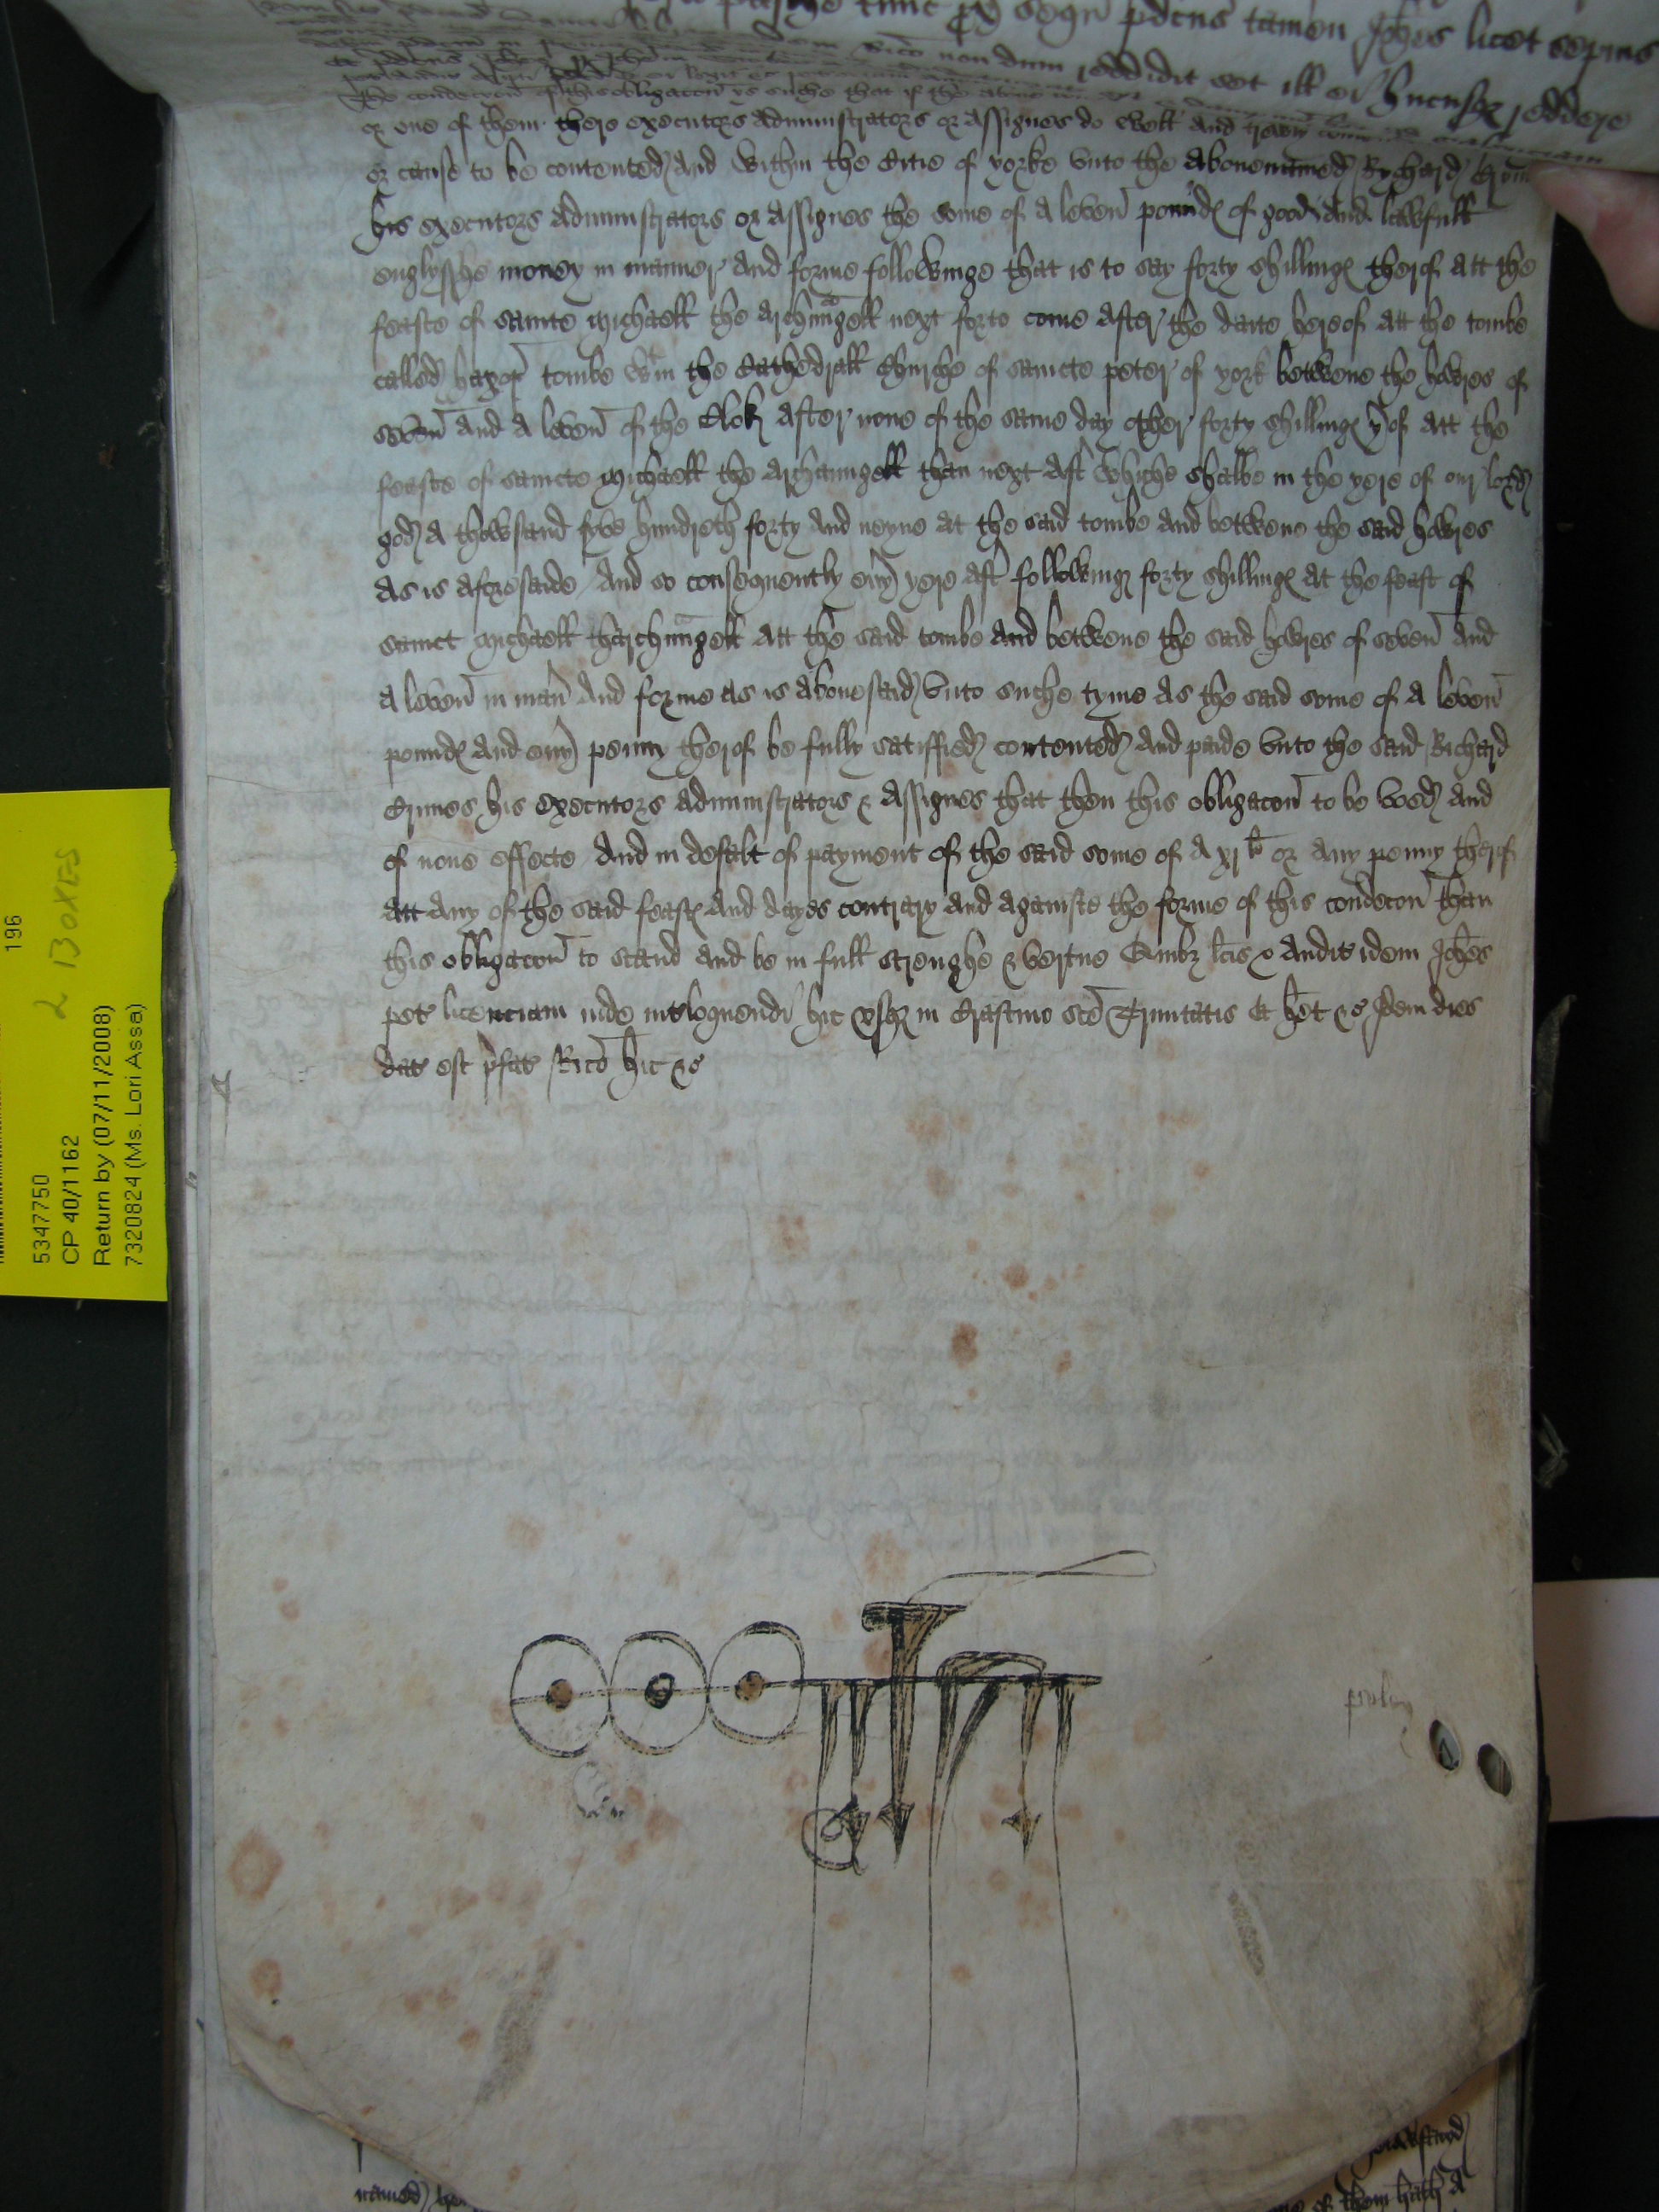 tunc quod sequi pdcus tamen Johes licet sepius
nondum reddidit set ill ei hucusq reddere
The condecon of this obligacon ys suche that if the above
or one of them there executors administrators or Assignes do well and trewly
or cause to be contented and within the Citie of yorke vnto the abovenamed Rychard
his executors administrators or assignes the some of a leven pound of good and lawfull
englysshe money in manner and forme followinge that is to say forty shilling therof att the
feaste of sainte michaell the archangell next forto come after the date hereof att the tombe
called haxop tombe wtin the Cathedrall Churche of saincte peter of york betwene the howres of
seven and a leven of the Clok after none of the same day other forty shilling yrof att the
feaste of saincte michaell the archaungell than next aft whiche shalbe in the yere of our lord
god a thowsand fyve hundreth forty and neyne at the said tombe and betwene the said howres
as is aforesaide And so consequently evy yere aft following forty shilling at the feast of
sainct michaell tharchangell att the said tombe and betwene the said howres of seven and
a leven in man and forme as is abovesaid vnto suche tyme as the said some of a leven
pound and evy penny therof be fully satisfied contented and paide vnto the said Richard
Crimes his executors administrators & assignes that then this obligacon to be voed and
of none effecte And in defalt of payment of the said some of a xj li or any penny therof
att any of the said feast and dayes contrary and againste the forme of this condecon than
this obligacon to stand and be in full strenghe & vertue Quibz lcis & audit idem Johes
pet licenciam inde intloquendi hic vsq in Crastino sce Trinitatis Et het &c Idem dies
dat est pfat Rico hic &c
196
2 BOXES
5347750
CP 40/1162
Return by (07/11/2008)
7320824 (Ms. Lori Assa)
of them hath a